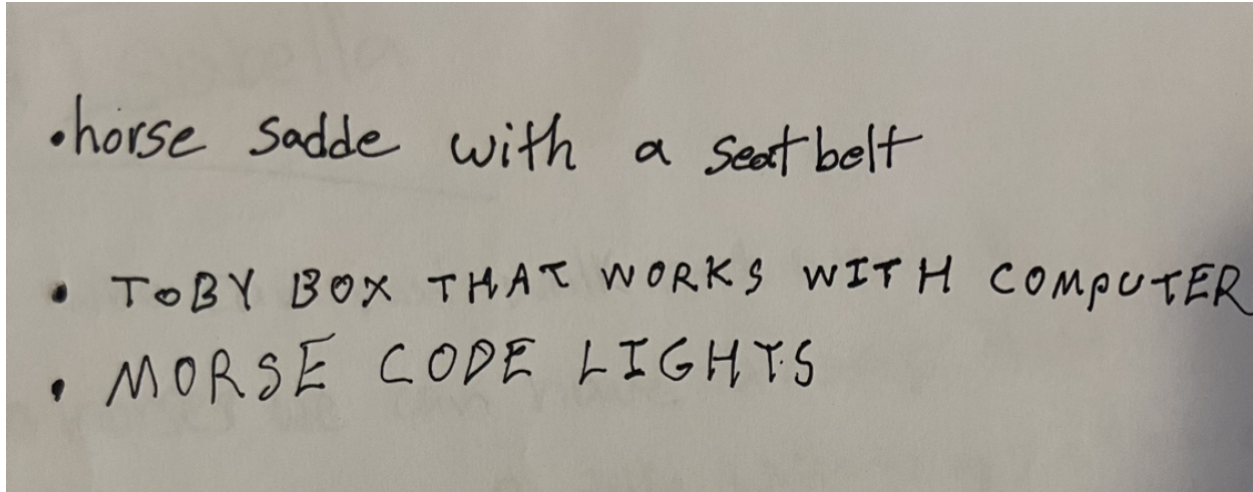 •horse sadde with a seat belt
• TOBY BOX THAT WORKS WITH COMPUTER
• MORSE CODE LIGHTS